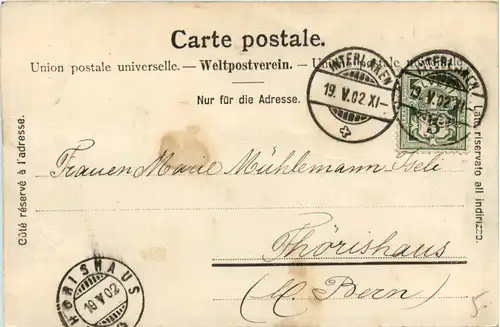 Carte postale.
Union postale universelle. — Weltpostverein. — Unione postale universale.
Nur für die Adresse.
Côté réservé à l'adresse.
Lato riservato all indirizzo.
INTERLAKEN
19. V. 02. XI–
INTERLAKEN
19. V. 02. XI
5
Frauen Marie Mühlemann Iseli
Thörishaus
(Ct. Bern)
THÖRISHAUS
19 V 02
5.